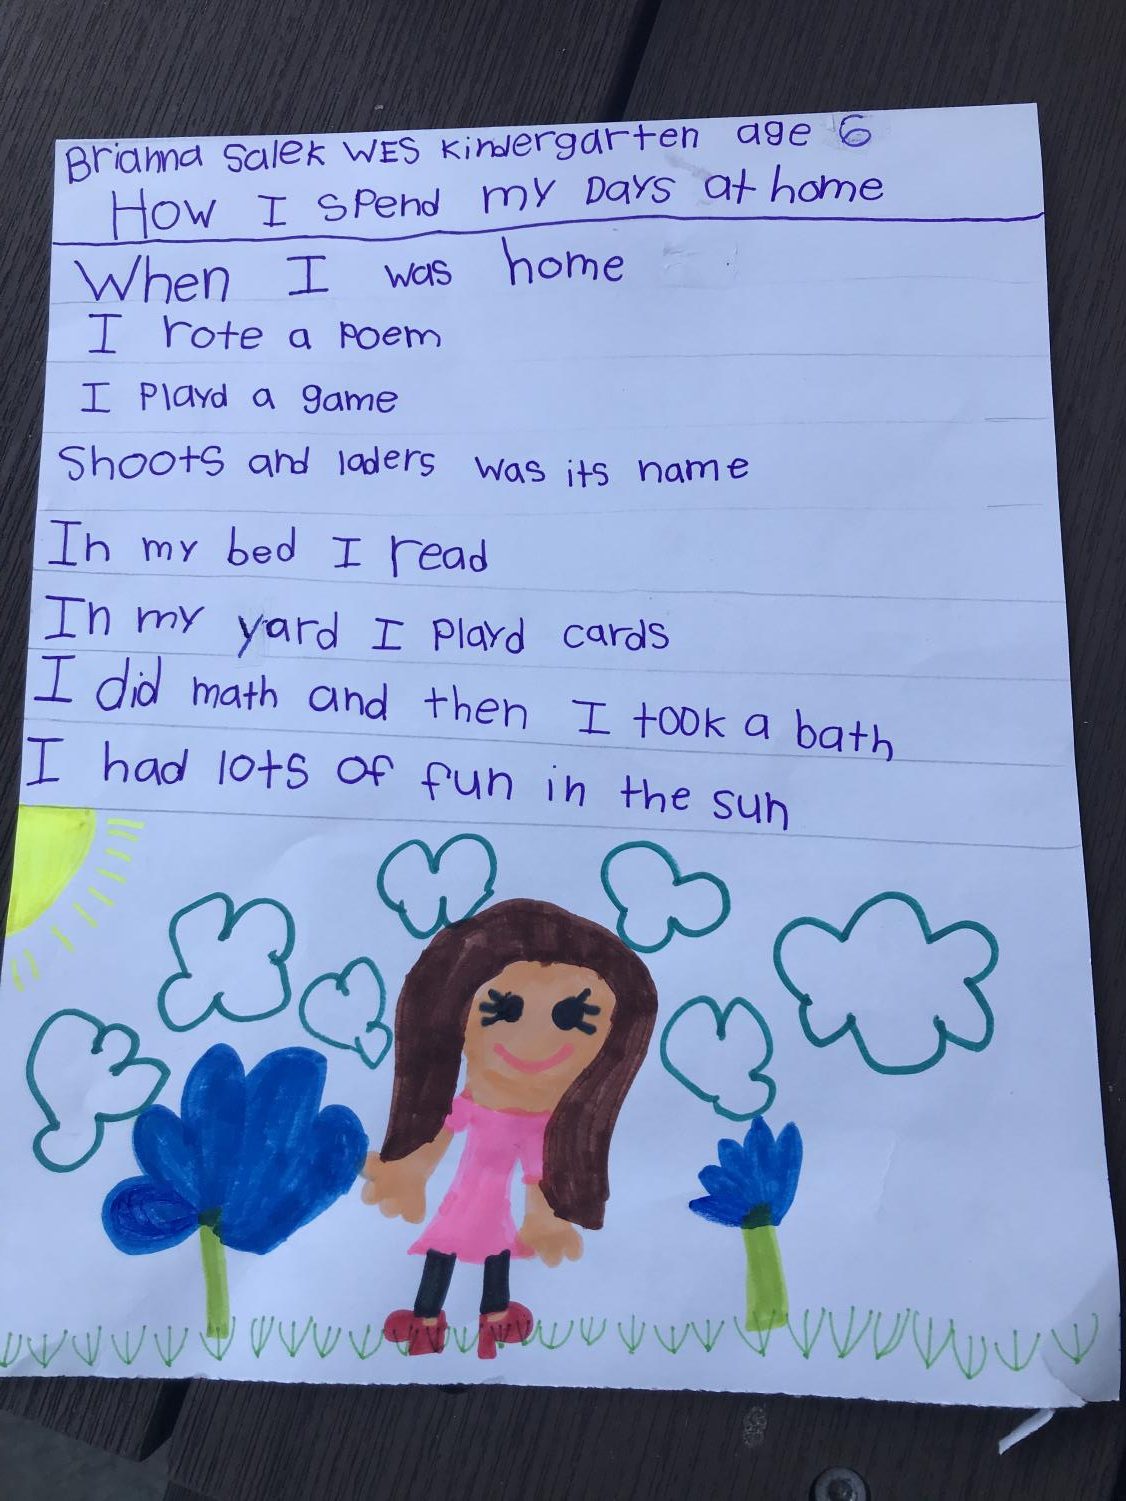 Brianna Salek WES Kindergarten age 6
How I spend my Days at home
When I was home
I rote a poem
I playd a game
Shoots and laders was its name
In my bed I read
In my yard I playd cards
I did math and then I took a bath
I had lots of fun in the sun